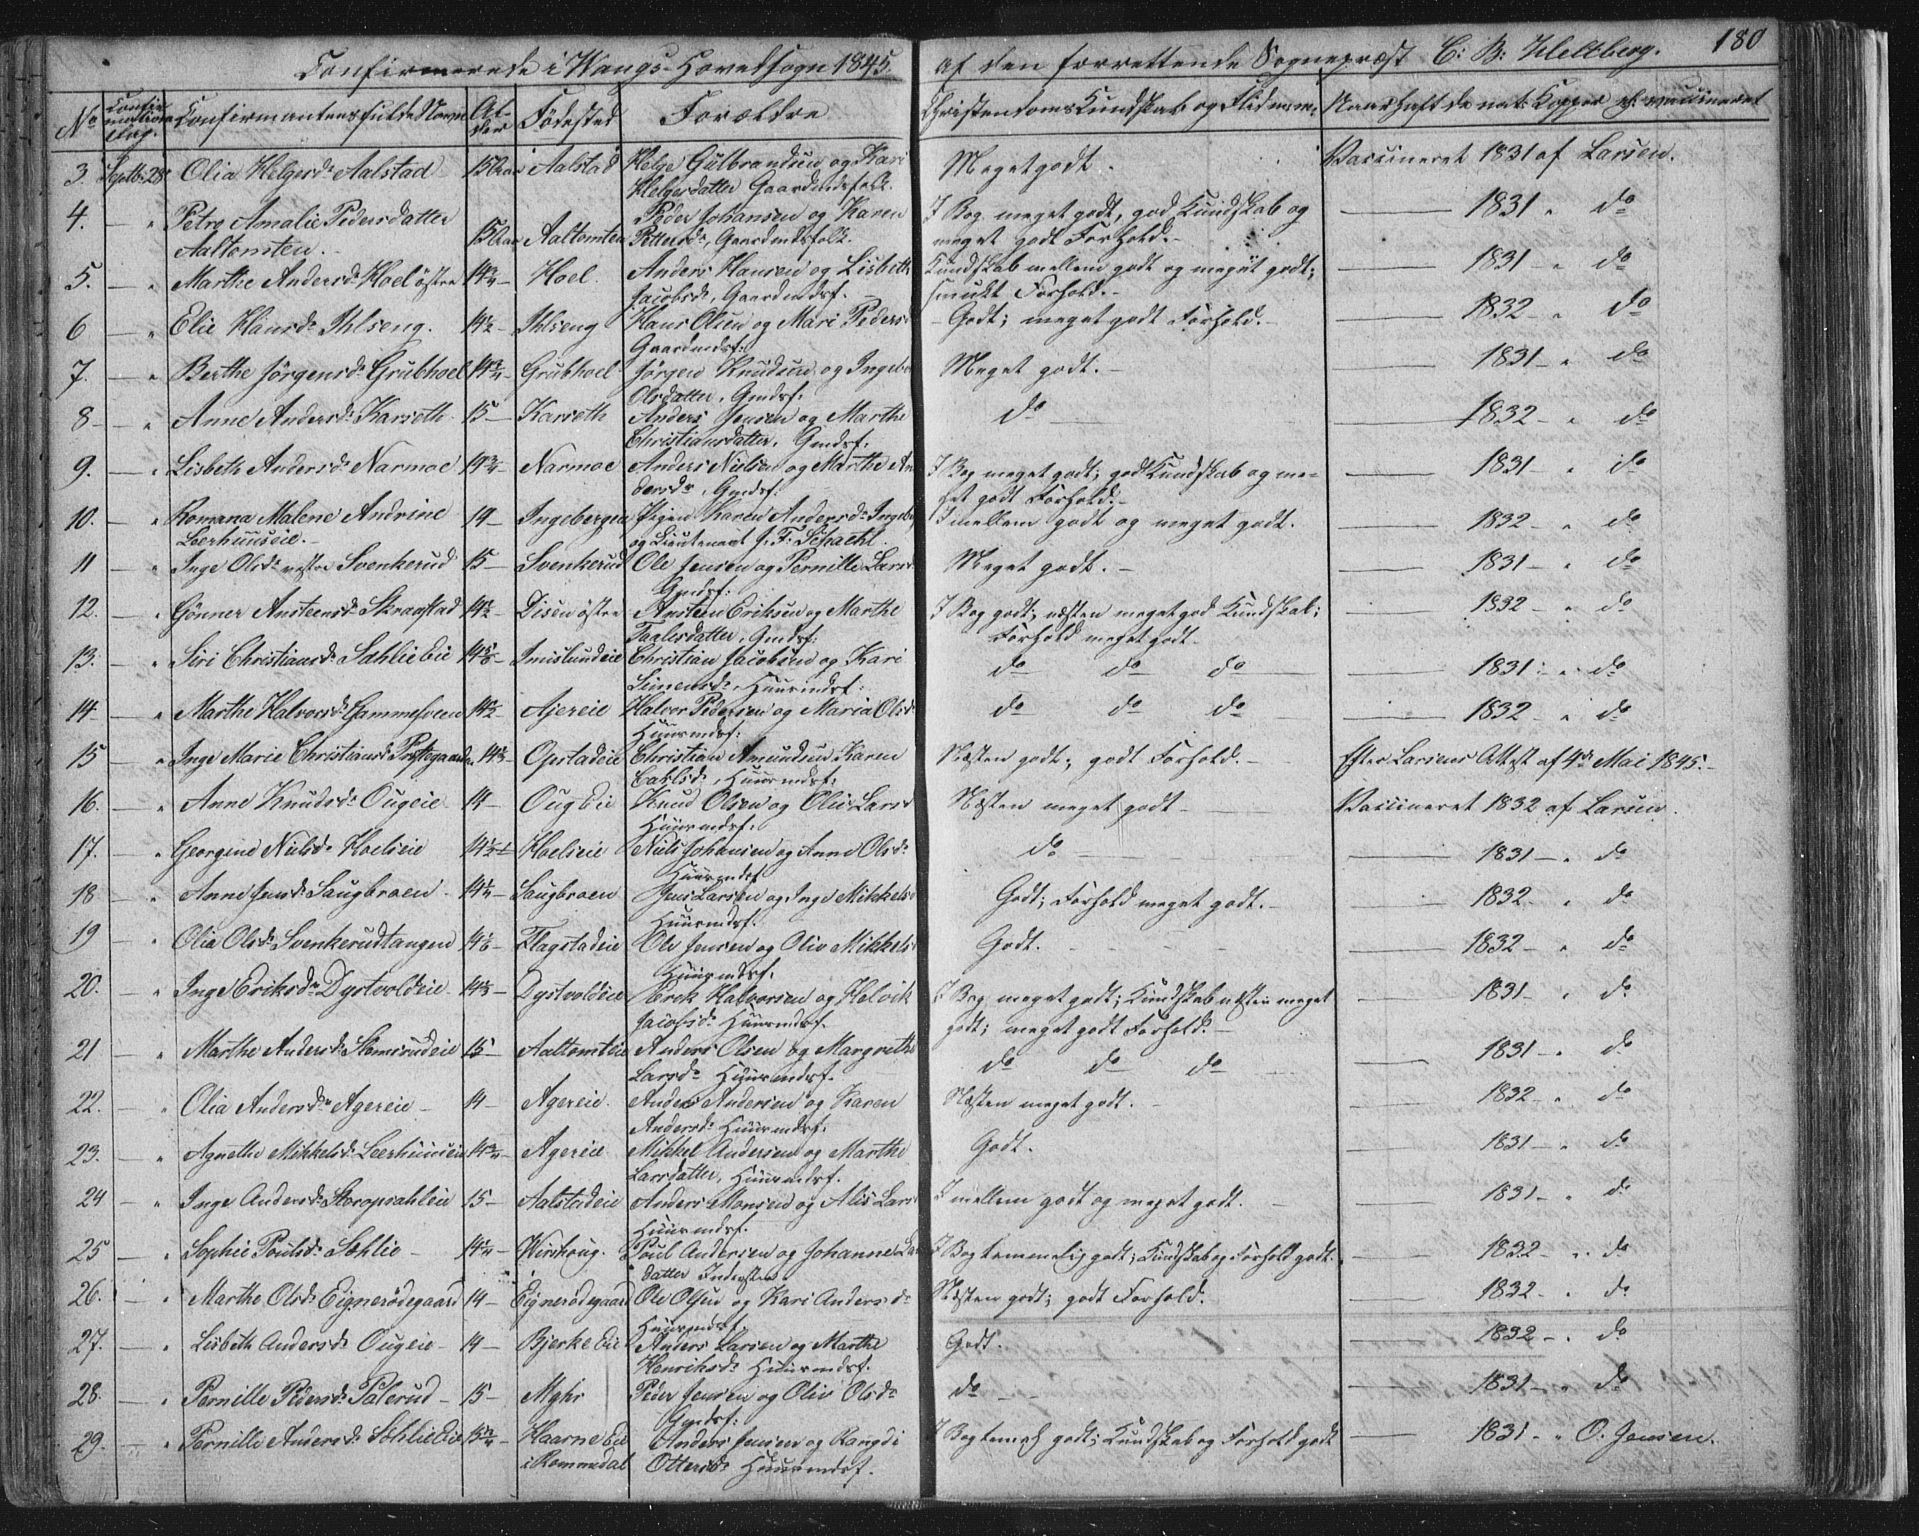 Confirmerede i Wangs Hovedsogn 1845. af den forrettende Sognepræst C: B: Heltberg. 180
No Confirmations dag. Confirmantens fulde Navn Alder Fødested Forældre Christendoms Kundskab og Flid m.m. Naar haft de nat: Kopper el. vaccineret
3. Septb. 28 Olia Helgesd: Aalstad 15 Aar Aalstad Helge Gulbrandsen og Kari Meget godt. Vaccineret 1831 af Larsen.
Helgesdatter Gaardmdsfolk.
4. — " Petre Amalie Pedersdatter Peder Johansen og Karen I Bog meget godt, god Kundskab og — 1831 " do
Aaltomten. 15 Aar Aaltomten Pettersd:, Gaardmdsfolk. meget godt Forhold.
5. — " Marthe Andersd: Hoel østre 14 3/4 — Hoel. Anders Hansen og Lisbeth Kundskab mellem godt og meget godt; — 1831 " do
Jacobsd:, Gaardmdsf. smukt Forhold.
6 — " Elie Hansd: Ihlseng. 14 1/2 — Ihlseng Hans Olsen og Mari Pedersd Godt; meget godt Forhold. — 1832 " do
Gaardmdsf:
7. — " Berthe Jørgensd: Grubhoel 14 3/4 — Grubhoel Jørgen Knudsen og Ingeb Meget godt. — 1831 " do
Olsdatter, Gmdsf:
8 — " Anne Andersd: Karseth. 15 — Karseth Anders Jensen og Marthe do — 1832 " do
Christiansdatter, Gmdsf:
9. — " Lisbeth Andersd: Narmoe 14 3/4 — Narmoe Anders Nielsen og Marthe An I Bog meget godt; god Kundskab og me- — 1831 " do
dersd:, Gmdsf: get godt Forhold.
10. — " Romana Malene Andrine 14 — Ingebergen Pigen Karen Andersd: Ingeb I mellem godt og meget godt. — 1832 " do
Leerhuuseie. og Lieutenant J. F. Schacht.
11 — " Inge Olsd: vestre Svenkerud 15 — Svenkerud Ole Jensen og Pernille Larsd Meget godt. — 1831 " do
Gmdsf:
12. — " Gønner Ansteensd: Skraastad 14 1/2 — Disen østre Ansten Eriksen og Marthe I Bog godt; næsten meget god Kundskab; — 1832 " do
datter, Gmdsf: Forhold meget godt
13. — " Siri Christiansd: Sahlie Eie 14 5/6 — Imislundeie Christian Jacobsen og Kari do do do — 1831 " do
Simensd:, Huusmdsf:
14 — " Marthe Halvorsd: Gammelsveen 14 1/2 — Ajereie Halvor Pedersen og Maria Olsd do do do — 1832 " do
Huusmdsf:
15 — " Inge Marie Christiansd: 14 1/2 — Opstadeie Christian Amundsen Karen Næsten godt; godt Forhold. Efter Larsens Attest af 4de Mai 1845.
Carlsd:, Huusmdsf:
16. — " Anne Knudsd: Ougeie 14 — Oug Eie Knud Olsen og Olia Larsd Næsten meget godt Vaccineret 1832 af Larsen.
Huusmdsf:
17. — " Georgine Nielsd: Hoelseie Hoelseie Niels Johansen og Anne Olsd: do — 1831 — " do
Huusmdsf
18 — " Anne Jensd: Saugbroen. 14 1/4 — Saugbroen Jens Larsen og Inge Mikkelsd Godt; Forhold meget godt. — 1832. " do
Huusmdsf.
19 — " Olia Olsd: Svenkerudtangen 14 1/6 — Flagstadeie Ole Jensen og Oliv Mikkelsd Godt. — 1832 — " do
Huusmdsf.
20. — " Inge Eriksd: Dystvoldeie 14 1/3 — Dystvoldeie Erek Halvorsen og Helvik I Bog meget godt; Kundskab næsten meget — 1831 " do
Jacobsd: Huusmdsf. godt; meget godt Forhold.
21 — " Marthe Andersd: Stomsrudeie 15 — Aaltomteie Anders Olsen og Margrethe do do do — 1831 — " do
Larsd: Huusmdsf.
22. — " Olia Andersd: Agereie 14 — Agereie. Anders Andersen og Karen Næsten meget godt. — 1832 " do
Andersd: Huusmdsf:
23. — " Agnethe Mikkelsd: Leerhuuseie 14 3/4 — Agereie Mikkel Andersen og Marthe Godt. — 1831 " do
Larsdatter, Huusmdsf.
24 — " Inge Andersd: Storopsahleie 15 — Aalstadeie Anders Monsen og Alis Larsd I mellem godt og meget godt. — 1831 — " do
Huusmdsf.
25 — " Sophie Poulsd: Sæhlie 14 1/4 — Wirskoug. Poul Andersen og Johanne La I Bog temmelig godt; Kundskab og Forhold godt. — 1832 — " do
datter Inderster
26. — " Marthe Olsd: Eignerødegaard 14 — Eignerødegaard Ole Olsen og Kari Andersd: Næsten godt; godt Forhold. — 1832 — " do
Huusmdsf.
27. — " Lisbeth Andersd: Ougeie 14 — Bjerke Eie Anders Larsen og Marthe Godt. — 1832 — " do
Henriksd: Huusmdsf.
28. — " Pernille Pedersd: Pálerud 15 — Myhr Peder Jensen og Oliv Olsd: do — 1831 — " do
Gmdsf:
29. — " Pernille Andersd: Sæhlie Eie 15 1/4 — Haarne Eie Anders Jensen og Rangdi I Bog tem. godt; Kundskab og Forhold godt — 1831 — " O. Jensen.
i Rommedal Ottersd: Huusmdsf.